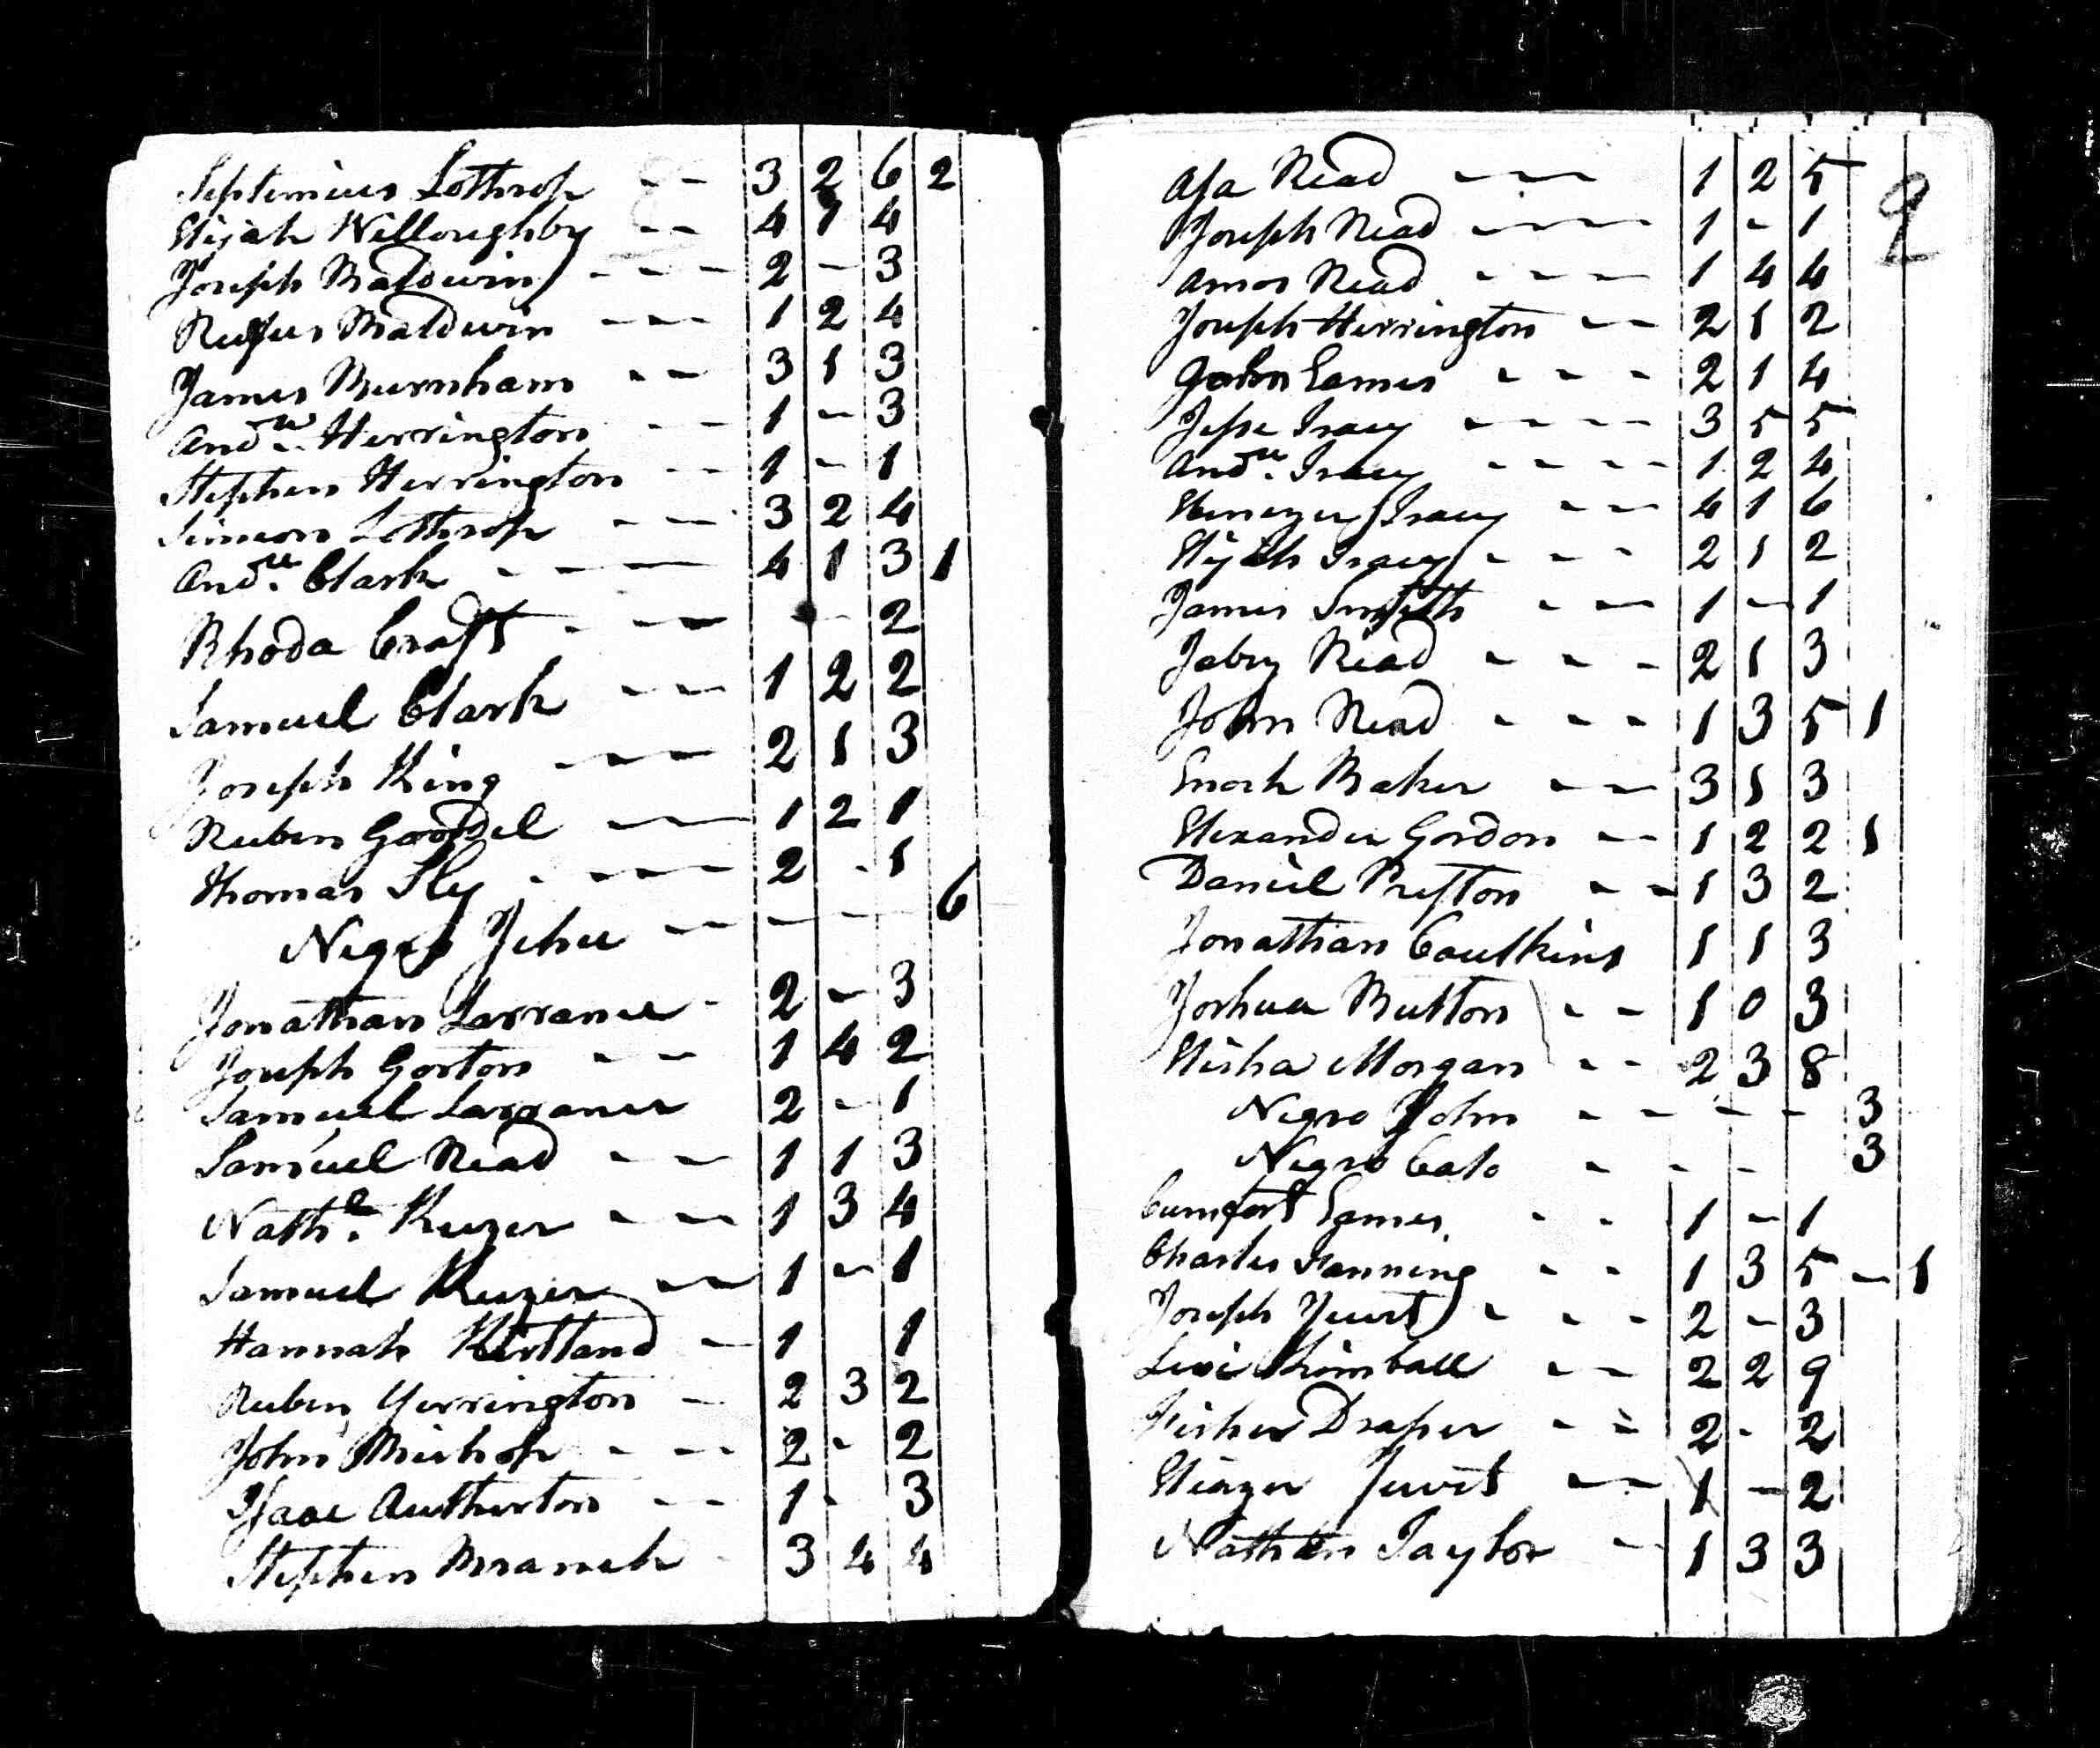 Septimius Lothrop -- 3 2 6 2
Elijah Willoughby -- 4 1 4
Joseph Baldwin --- 2 - 3
Rufus Baldwin --- 1 2 4
James Burnham -- 3 1 3
Andw. Herrington -- 1 - 3
Stephen Herrington -- 1 - 1
Simeon Lothrop --- 3 2 4
Andw. Clark ---- 4 1 3 1
Rhoda Craft --- - 2
Samuel Clark --- 1 2 2
Joseph King --- 2 1 3
Ruben Goodel --- 1 2 1
Thomas Sly ---- 2 - 1
Negro Jehu ---- 6
Jonathan Larrance - 2 - 3
Joseph Gorton -- 1 4 2
Samuel Larrance 2 - 1
Samuel Read -- 1 1 3
Nathl. Keezer --- 1 3 4
Samuel Keezer -- 1 - 1
Hannah Kirtland - 1 1
Ruben Yerrington - 2 3 2
John Bishop --- 2 - 2
Isaac Autherton -- 1 - 3
Stephen Branch - 3 4 4
9
Asa Read --- 1 2 5
Joseph Read ---- 1 - 1
Amos Read ---- 1 4 4
Joseph Herrington -- 2 1 2
John Eames --- 2 1 4
Jesse Tracy ---- 3 5 5
Andw. Tracy ---- 1 2 4
Ebenezer Tracy -- 4 1 6
Elijah Tracy --- 2 1 2
James Smith --- 1 - 1
Jabez Read --- 2 1 3
John Read --- 1 3 5 1
Enoch Baker -- 3 1 3
Elexander Gordon -- 1 2 2 1
Daniel Preston -- 1 3 2
Jonathan Caulkins 1 1 3
Joshua Button -- 1 0 3
Elisha Morgan -- 2 3 8
Negro John ---- 3
Negro Cato --- 3
Cumfort Eames -- 1 - 1
Charles Fanning -- 1 3 5 - 1
Joseph Jewet --- 2 - 3
Levi Kimball -- 2 2 9
Fisher Draper -- 2 - 2
Eliazer Jewet -- 1 - 2
Nathan Taylor - 1 3 3